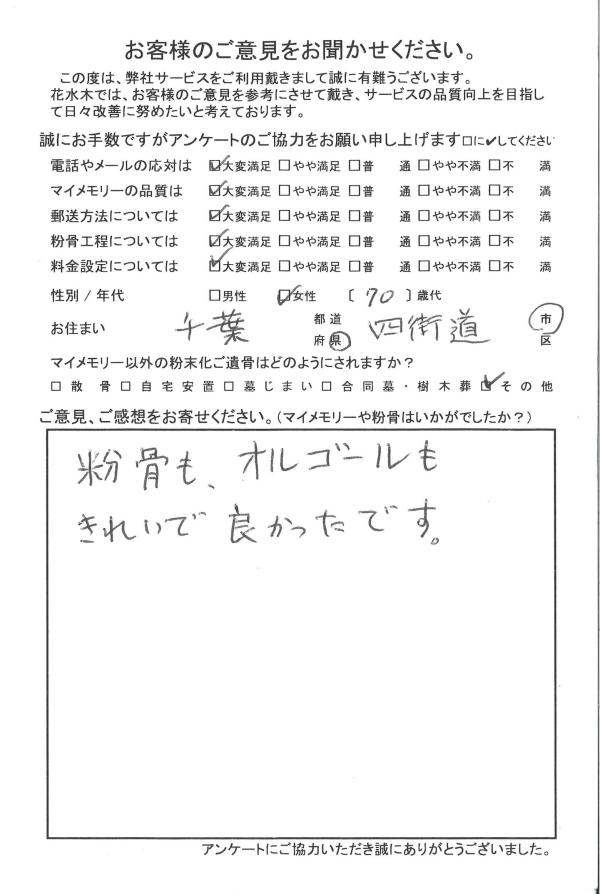 お客様のご意見をお聞かせください。
この度は、弊社サービスをご利用戴きまして誠に有難うございます。
花水木では、お客様のご意見を参考にさせて戴き、サービスの品質向上を目指し
て日々改善に努めたいと考えております。
誠にお手数ですがアンケートのご協力をお願い申し上げます□に✓してください
電話やメールの応対は ☑大変満足 □やや満足 □普 通 □やや不満 □不 満
マイメモリーの品質は ☑大変満足 □やや満足 □普 通 □やや不満 □不 満
郵送方法については ☑大変満足 □やや満足 □普 通 □やや不満 □不 満
粉骨工程については ☑大変満足 □やや満足 □普 通 □やや不満 □不 満
料金設定については ☑大変満足 □やや満足 □普 通 □やや不満 □不 満
性別 / 年代 □男性 ☑女性 〔 70 〕歳代
お住まい 千葉 都道府県 四街道 市区
マイメモリー以外の粉末化ご遺骨はどのようにされますか？
□散 骨 □自宅安置 □墓じまい □合同墓・樹木葬 ☑その他
ご意見、ご感想をお寄せください。(マイメモリーや粉骨はいかがでしたか？)
粉骨も、オルゴールも
きれいで良かったです。
アンケートにご協力いただき誠にありがとうございました。